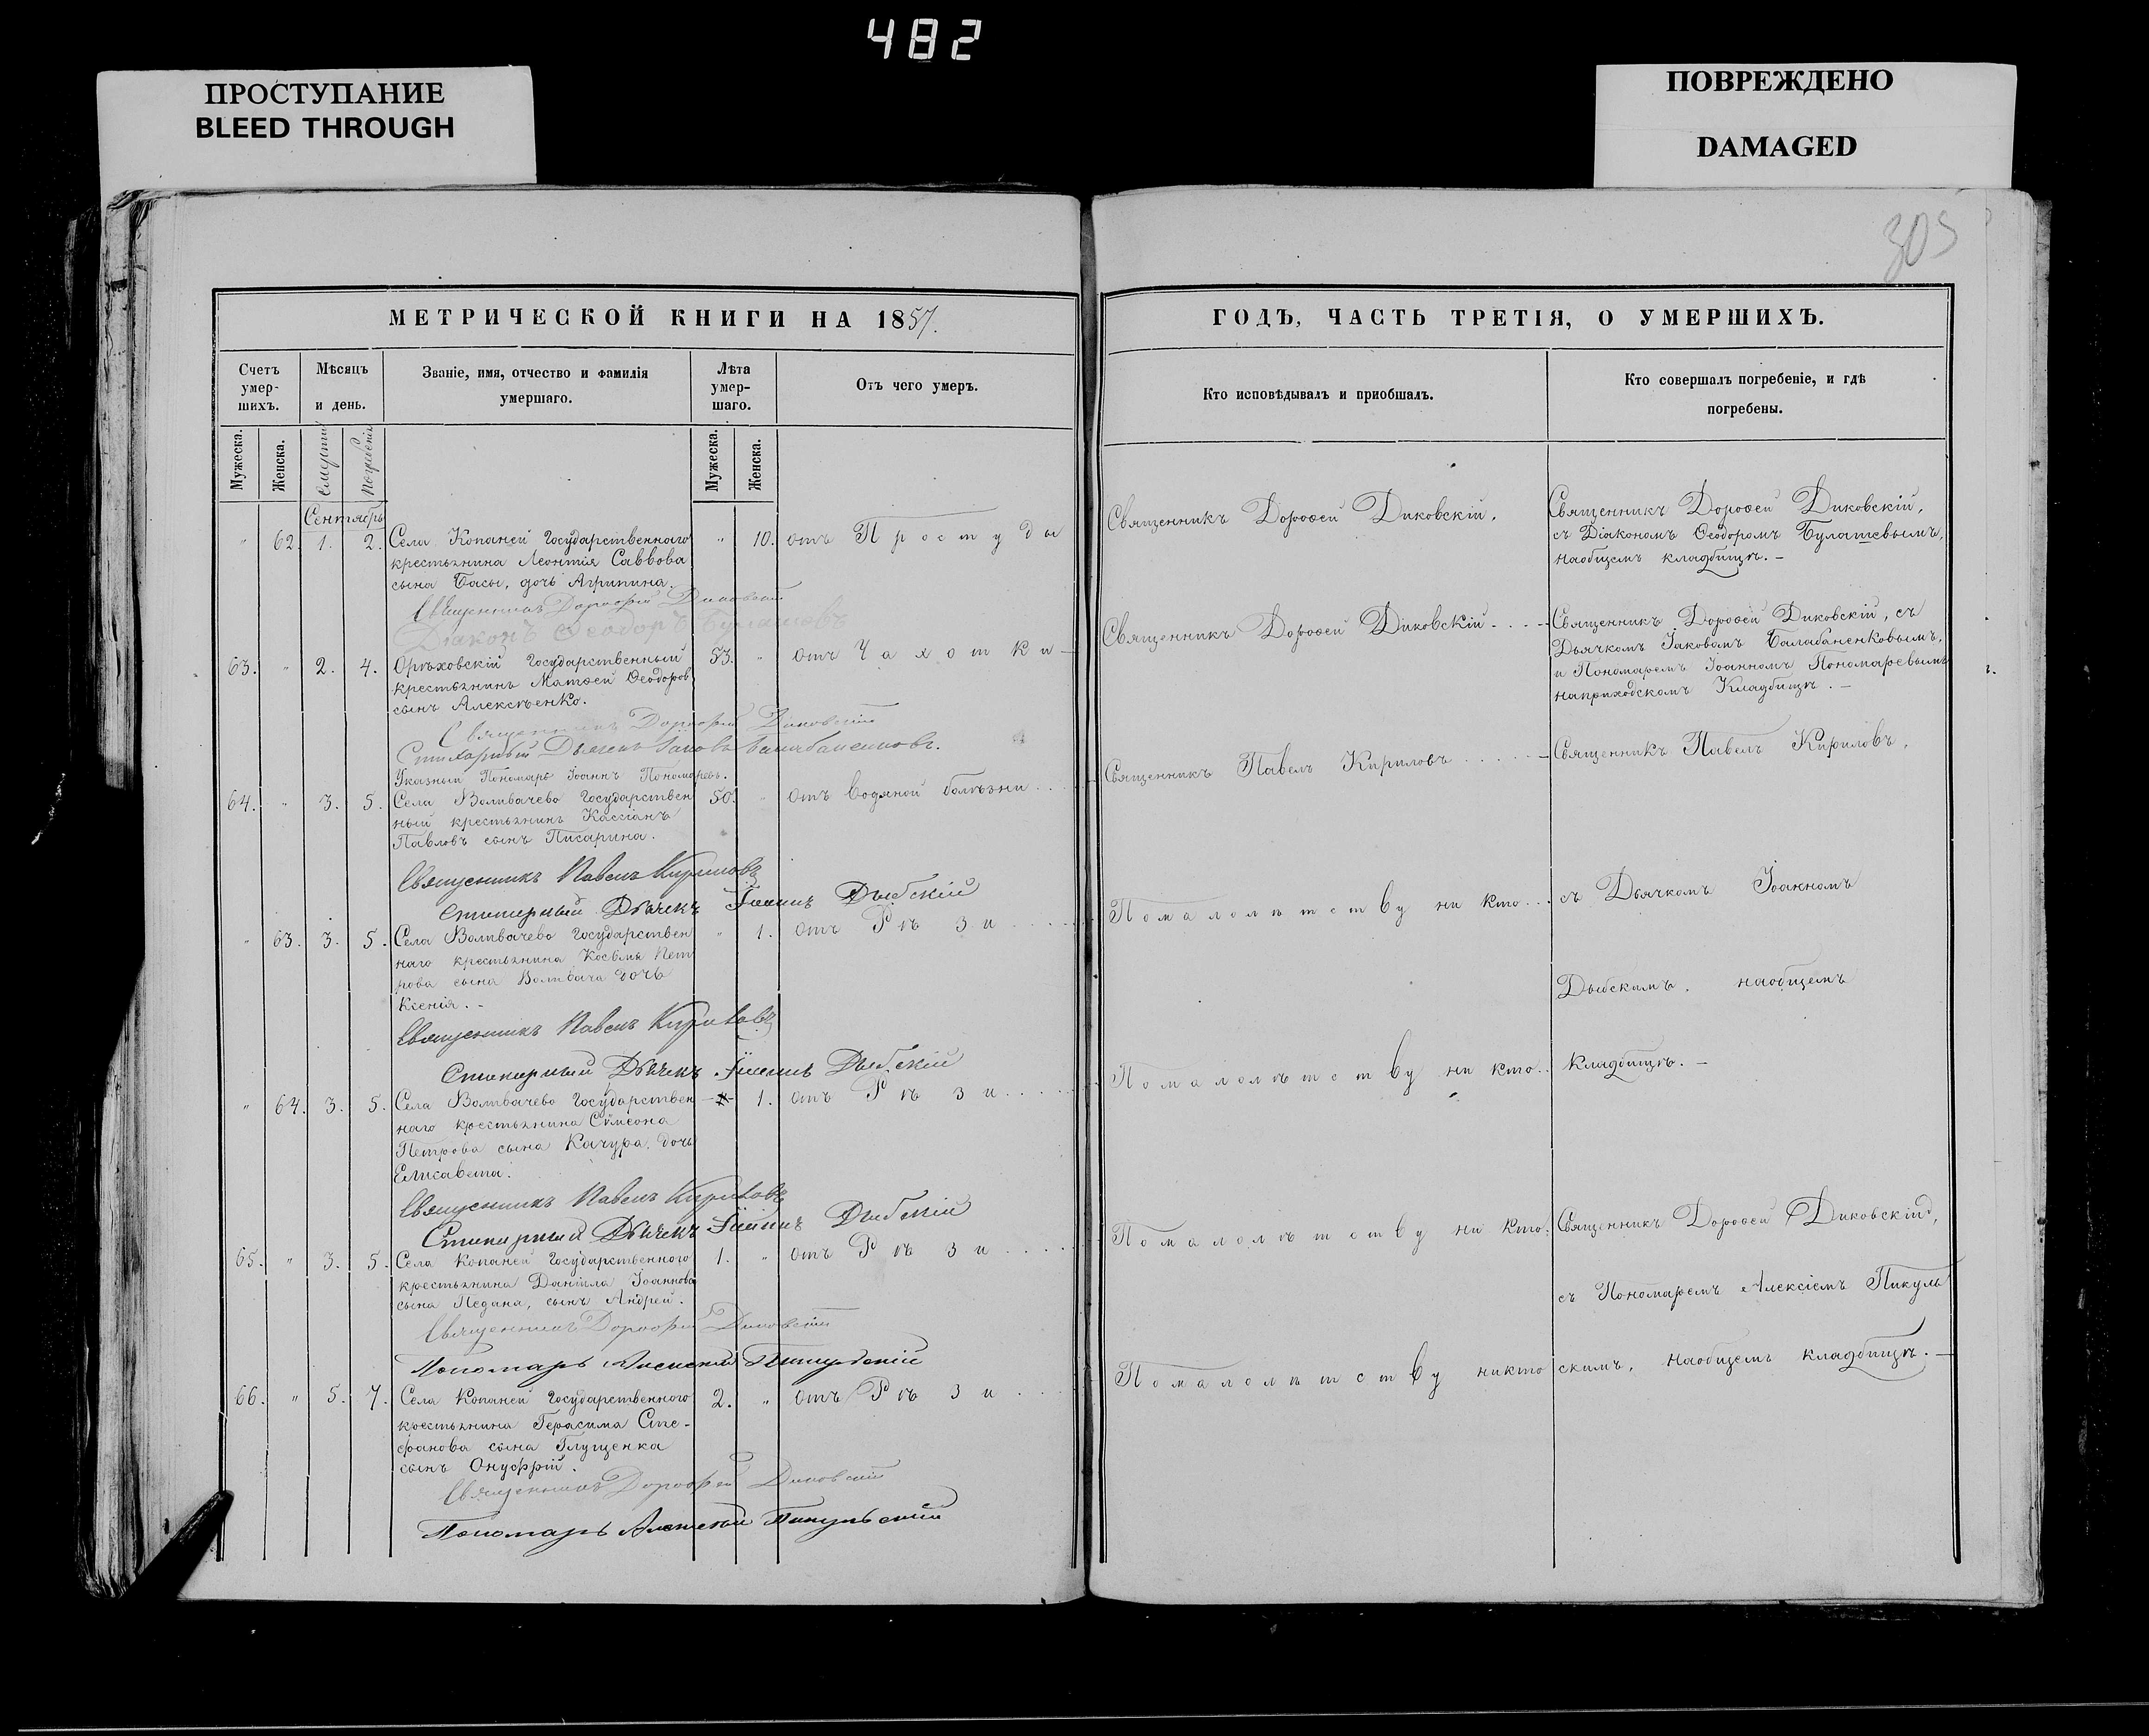 482
ПРОСТУПАНИЕ
BLEED THROUGH
ПОВРЕЖДЕНО
DAMAGED
305
МЕТРИЧЕСКОЙ КНИГИ НА 1857.
Счетъ умер-шихъ.
Мѣсяцъ и день.
Званіе, имя, отчество и фамилія умершаго.
Лѣта умер-шаго.
Отъ чего умеръ.
Мужеска. Женска. Смерти Погребенія Мужеска. Женска.
Сентябрь
" 62. 1. 2. Села Копаней Государственного " 10. отъ Простуды
крестьянина Леонтія Саввова
сына Басы, дочь Агрипина.
Священникъ Дорофей Диковскій
Діаконъ Ѳеодоръ Булашевъ
63. " 2. 4. Орѣховскій Государственный 53. " отъ Чахотки
крестьянинъ Матѳей Ѳеодоров
сынъ Алексѣенко.
Священникъ Дорофей Диковскій
Стихарный Дьячекъ Іаковъ Балабаненковъ.
Указный Пономарь Іоаннъ Пономаревъ.
64. " 3. 5. Села Волвачево Государствен 50. " отъ водяной болѣзни
ный крестьянинъ Кассіанъ
Павловъ сынъ Писарина.
Священникъ Павелъ Кириловъ
Стихарный Дьячекъ Іоаннъ Дыбскій
" 63. 3. 5. Села Волвачево Государствен " 1. отъ Рѣзи
наго крестьянина Косьмы Пет
рова сына Волвача дочь
Ксенія. -
Священникъ Павелъ Кириловъ
Стихарный Дьячекъ Іоаннъ Дыбскій
" 64. 3. 5. Села Волвачево Государствен " 1. отъ Рѣзи
наго крестьянина Сѵмеона
Петрова сына Качура, дочь
Елисавета.
Священникъ Павелъ Кириловъ
Стихарный Дьячекъ Іоаннъ Дыбскій
65. " 3. 5. Села Копаней Государственного 1. " отъ Рѣзи
крестьянина Даніила Іоаннова
сына Педана, сынъ Андрей.
Священникъ Дорофей Диковскій
Пономарь Алексей Пикульскій
66. " 5. 7. Села Копаней Государственного 2. " отъ Рѣзи
крестьянина Герасима Сте-
фанова сына Глущенка
сынъ Онуфрій.
Священникъ Дорофей Диковскій
Пономарь Алексей Пикульскій
ГОДЪ, ЧАСТЬ ТРЕТІЯ, О УМЕРШИХЪ.
Кто исповѣдывалъ и приобшалъ.
Кто совершалъ погребеніе, и гдѣ
погребены.
Священникъ Дороѳей Диковскій.
Священникъ Дороѳей Диковскій,
съ Діакономъ Ѳеодоромъ Булашевымъ,
наобщемъ кладбищѣ. -
Священникъ Дороѳей Диковскій
Священникъ Дороѳей Диковскій, съ
Дьячкомъ Іаковомъ Балабаненковымъ,
и Пономаремъ Іоанномъ Пономаревымъ
наприходскомъ Кладбищѣ. -
Священникъ Павелъ Кириловъ
Священникъ Павелъ Кириловъ,
Помалолѣтству ни кто
съ Дьячкомъ Іоанномъ
Дыбскимъ, наобщемъ
Помалолѣтству ни кто
кладбищѣ. -
Помалолѣтству ни кто
Священникъ Дороѳей Диковскій,
съ Пономаремъ Алексіемъ Пикуль
Помалолѣтству никто
скимъ, наобщемъ кладбищѣ. -